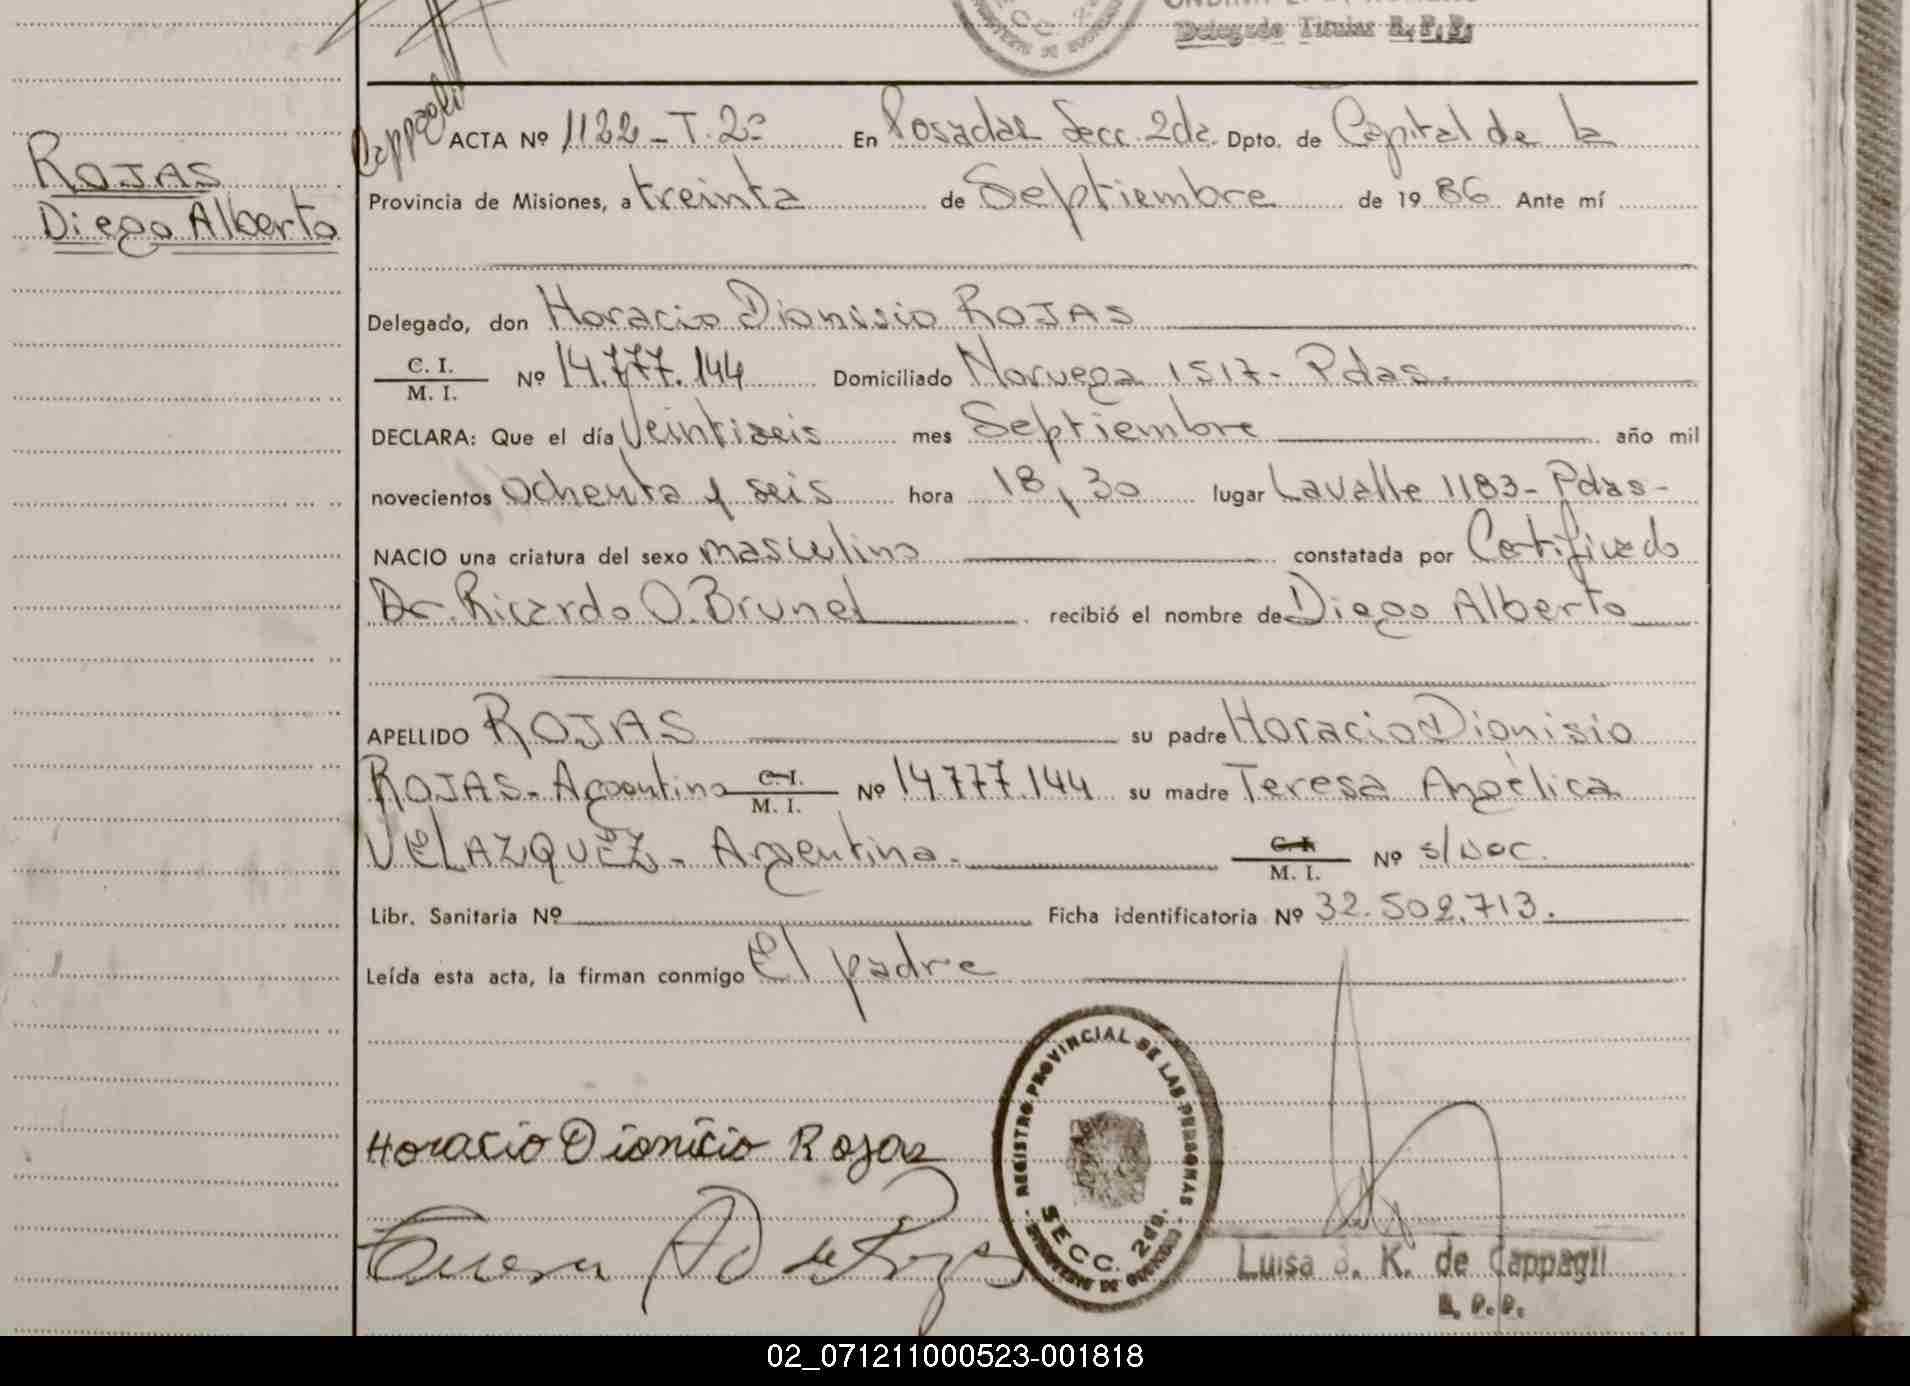 Delegado Titular R.P.P.
Cappagli
ROJAS
Diego Alberto
ACTA Nº 1122 - T. 2º En Posadas Secc. 2da. Dpto. de Capital de la
Provincia de Misiones, a treinta de Septiembre de 1986 Ante mí
Delegado, don Horacio Dionisio ROJAS
C. I.
M. I. Nº 14.777.144 Domiciliado Noruega 1517 - Pdas.
DECLARA: Que el día veintiseis mes Septiembre año mil
novecientos ochenta y seis hora 18,30 lugar Lavalle 1183 - Pdas -
NACIO una criatura del sexo masculino constatada por Certificado
Dr. Ricardo O. Brunel recibió el nombre de Diego Alberto
APELLIDO ROJAS su padre Horacio Dionisio
ROJAS - Argentino C. I. M. I. Nº 14.777.144 su madre Teresa Angélica
VELAZQUEZ - Argentina. C. I. M. I. Nº s/Doc.
Libr. Sanitaria Nº Ficha identificatoria Nº 32.502.713.
Leída esta acta, la firman conmigo El padre
REGISTRO PROVINCIAL DE LAS PERSONAS
SECC. 2da.
Horacio Dionicio Rojas
Luisa K. de Cappagli
R. P. P.
02_071211000523-001818